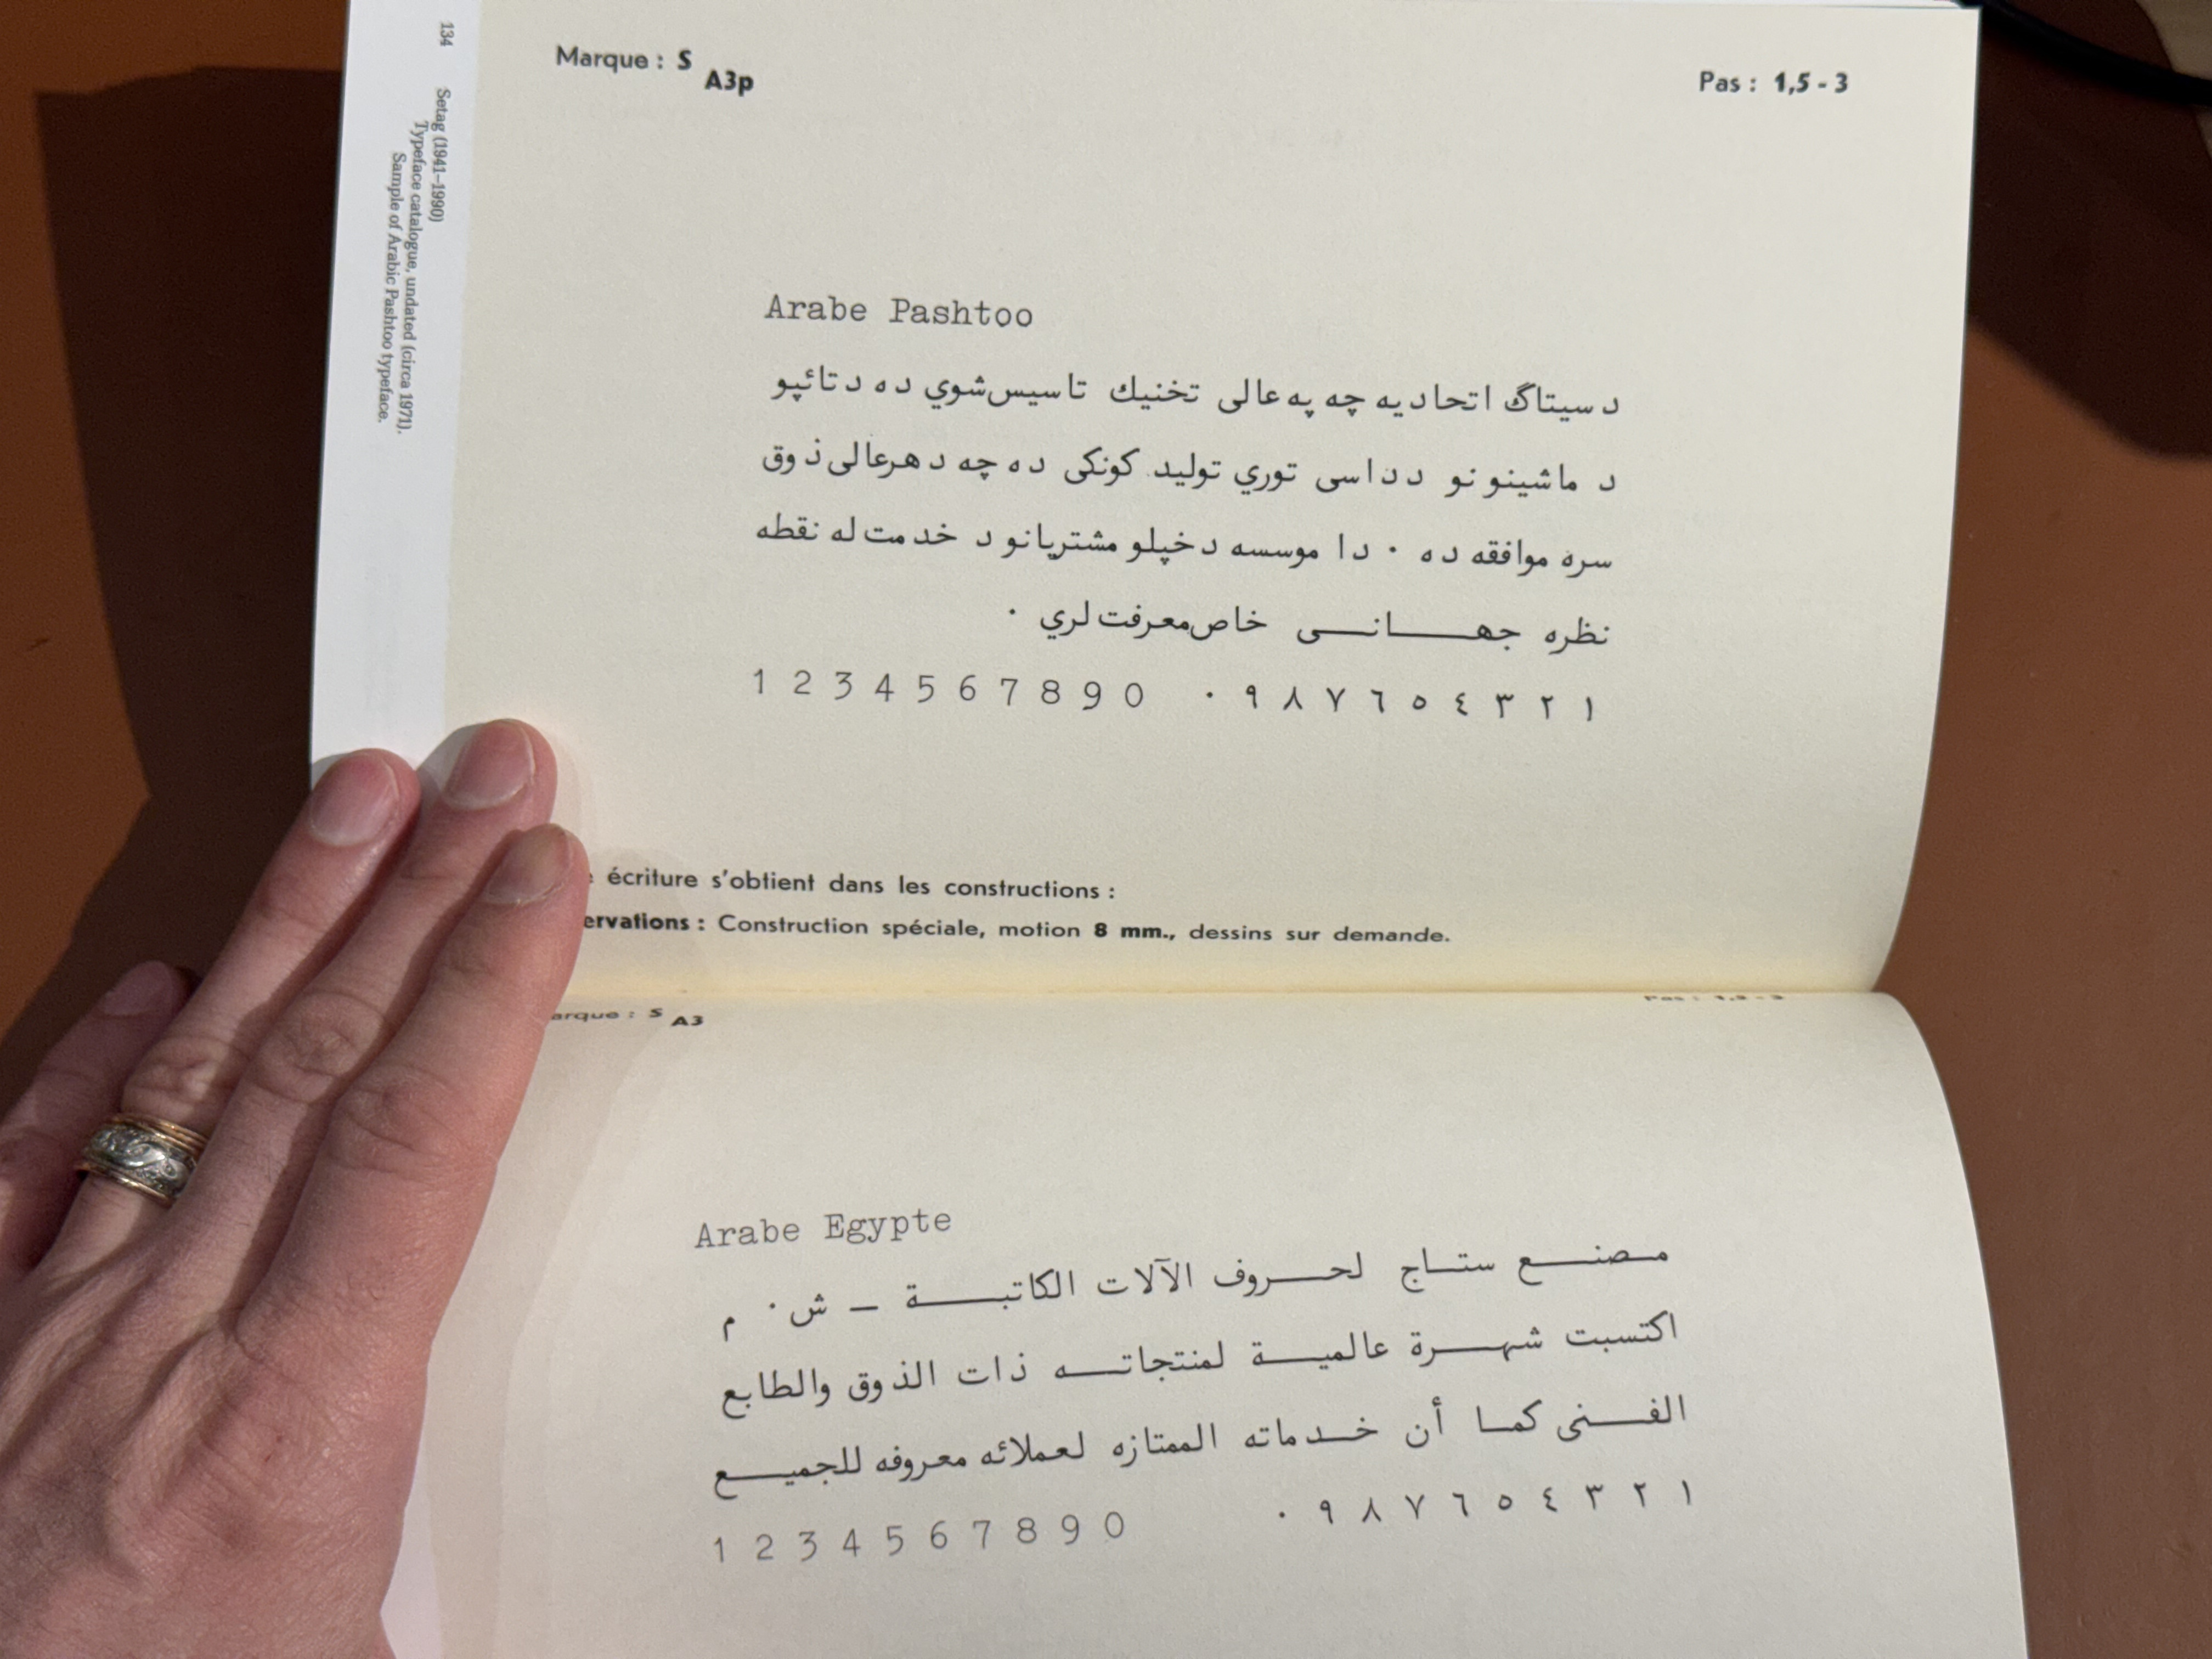 134
Setag (1941–1990)
Typeface catalogue, undated (circa 1971).
Sample of Arabic Pashtoo typeface.
Marque : S A3p
Pas : 1,5 - 3
Arabe Pashtoo
د سیتاگ اتحادیه چه په عالی تخنیك تاسیس شوي ده د تائپو
د ماشینو نو دد اسی توري تولید کونکی ده چه د هر عالی ذوق
سره موافقه ده ٠ دا موسسه د خپلو مشتریانو د خدمت له نقطه
نظره جهـــانــی خاص معرفت لري ٠
1 2 3 4 5 6 7 8 9 0 ١ ٢ ٣ ٤ ٥ ٦ ٧ ٨ ٩ ٠
écriture s'obtient dans les constructions :
ervations : Construction spéciale, motion 8 mm., dessins sur demande.
arque : S A3
Pas : 1,5 - 3
Arabe Egypte
مـصنــــع ستــاج لحـــروف الآلات الكاتبــــة — ش ٠ م
اكتسبت شهـــرة عالميـــة لمنتجاتـــه ذات الذوق والطابع
الفـــنى كمــا أن خــدماته الممتازه لعملائه معروفه للجميـــع
1 2 3 4 5 6 7 8 9 0 ١ ٢ ٣ ٤ ٥ ٦ ٧ ٨ ٩ ٠